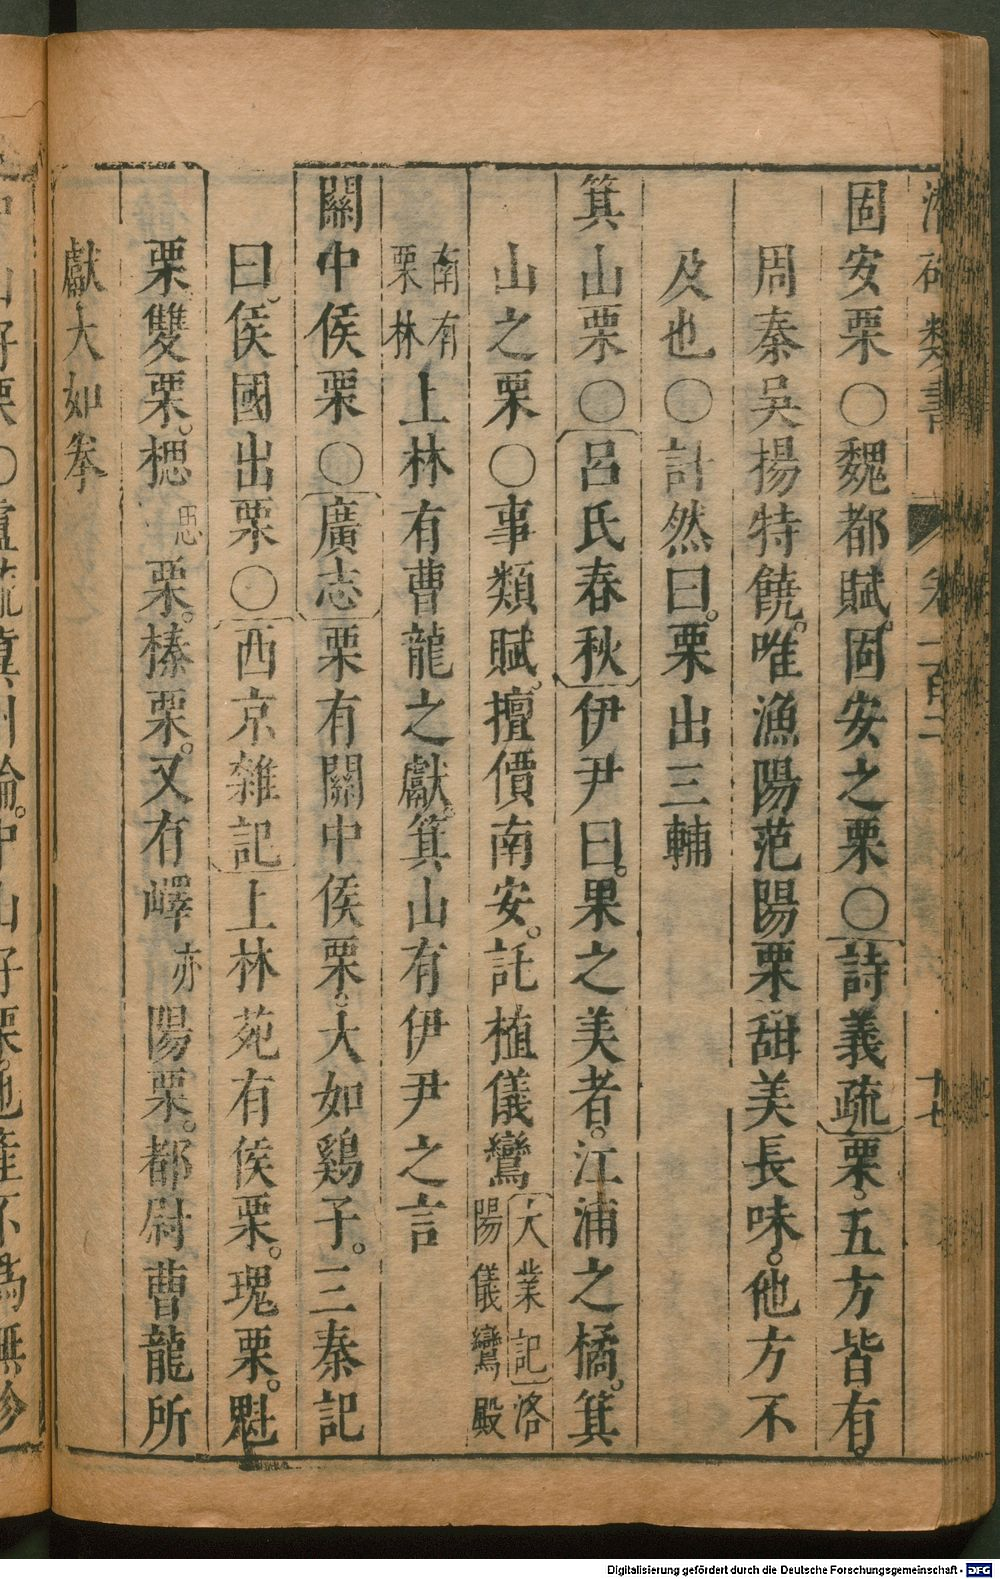 類書 卷一百二 十七
固安栗○魏都賦。固安之栗○詩義疏栗。五方皆有。
周秦吳揚特饒。唯漁陽范陽栗甜美長味。他方不
及也○計然曰。栗出三輔
箕山栗○呂氏春秋伊尹曰。果之美者。江浦之橘。箕
山之栗○事類賦。擅價南安。託植儀鸞大業記洛陽儀鸞殿
南有栗林上林有曹龍之獻。箕山有伊尹之言
關中侯栗○廣志栗有關中侯栗。大如鷄子。三秦記
曰。侯國出栗○西京雜記上林苑有侯栗。瑰栗。魁
栗雙栗。榹思栗。榛栗。又有嶧亦陽栗。都尉曹龍所
獻大如拳
山好栗○盧
中山好栗。地産不爲無珍
Digitalisierung gefördert durch die Deutsche Forschungsgemeinschaft - DFG